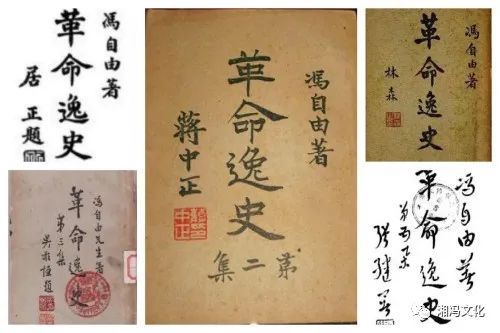 馮自由著
革命逸史
居正題
馮自由著
革命逸史
第二集
蔣中正
馮自由著
革命逸史
林森
馮自由先生著
革命逸史
第三集
吳敬恆題
馮自由著
革命逸史
張繼署
湘冯文化